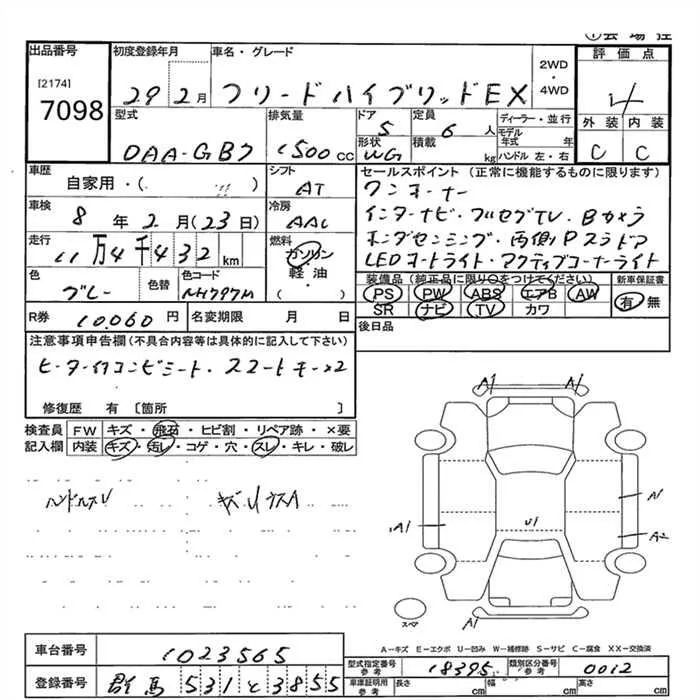 出品番号
[2174]
7098
初度登録年月
29 2月
車名・グレード
フリードハイブリッドEX
2WD
・
4WD
評価点
4
外装 内装
C C
型式
DAA-GB7
排気量
1500cc
ドア
5
形状
WG
定員
6人
積載
kg
ディーラー・並行
モデル年式 年
ハンドル 左・右
車歴
自家用・( )
シフト
AT
車検
8年2月(23日)
冷房
AAC
走行
11万4千432km
燃料
ガソリン
軽油
( )
色
グレー
色替
色コード
NH797M
セールスポイント (正常に機能するものに限ります)
ワンオーナー
インターナビ・フルセグTV・Bカメラ
ホンダセンシング・両側Pスラドア
LEDオートライト・アクティブコーナーライト
装備品 (純正品に限り○をつけてください)
PS PW ABS エアB AW
SR ナビ TV カワ
新車保証書
有 無
R券 10,060円
名変期限 月 日
後日品
注意事項申告欄(不具合内容等は具体的に記入して下さい)
ヒーター付コンビシート・スマートキー×2
修復歴 有 〔箇所 〕
検査員
記入欄
FW キズ・飛石・ヒビ割・リペア跡・×要
内装 キズ・汚レ・コゲ・穴・スレ・キレ・破レ
ハンドルスレ
A1 A1
A1
A1
U1
A2
A1
スペア
A-キズ E-エクボ U-凹み W-補修跡 S-サビ C-腐食 XX-交換済
車台番号
1023565
登録番号
群馬 531 と 3855
型式指定番号
参考
18395
類別区分番号
参考
0012
車庫証明用
参考
長さ cm
幅 cm
高さ cm